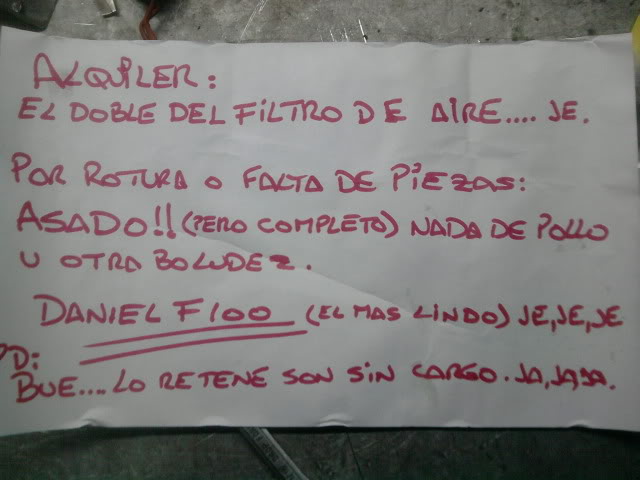 ALQUILER:
EL DOBLE DEL FILTRO DE AIRE.... JE.
POR ROTURA O FALTA DE PIEZAS:
ASADO!! (PERO COMPLETO) NADA DE POLLO
U OTRA BOLUDEZ.
DANIEL F100 (EL MAS LINDO) JE, JE, JE
PD:
BUE.... LO RETENE SON SIN CARGO. JA, JAJA.